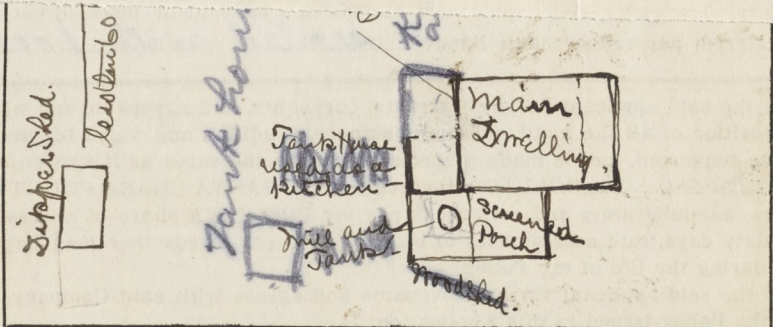 Dipper Shed.
less than 60
Tank House
Main
Dwelling.
Tank House
used as a
Kitchen
Mill and
Tanks
Screened
Porch
Woodshed.